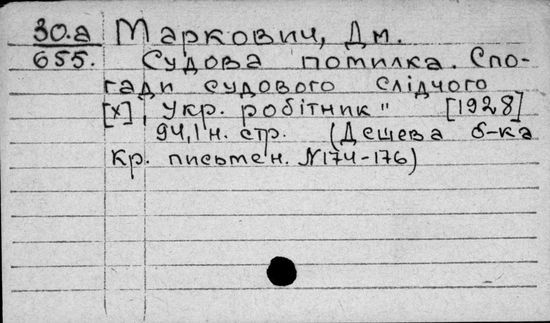 30.а Маркович, Дм.
655. Судова помилка. Спо-
гади судового слідчого
[х], „Укр. робітник" [1928]
94,1 н. стр. (Дешева б-ка
Кр. письмен. N174-176)